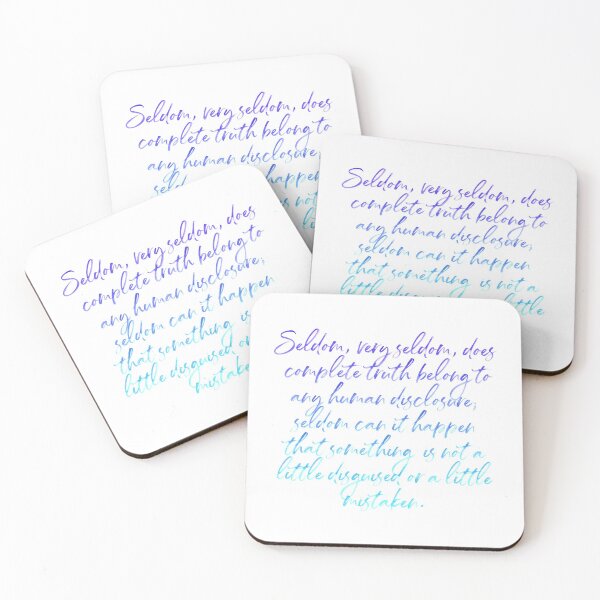 Seldom, very seldom, does
complete truth belong to
any human disclosure;
seldom happen
is not
li
Seldom, very seldom, does
complete truth belong to
any human disclosure;
seldom can it happen
that something is not a
little disguised or a little
Seldom, very seldom, does
complete truth belong to
any human disclosure;
seldom can it happen
that something is
little disguised or
mistaken
Seldom, very seldom, does
complete truth belong to
any human disclosure;
seldom can it happen
that something is not a
little disguised or a little
mistaken.